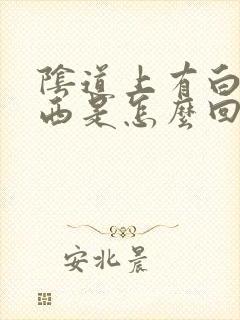 陰道上有白
西是怎麼回
安北晨